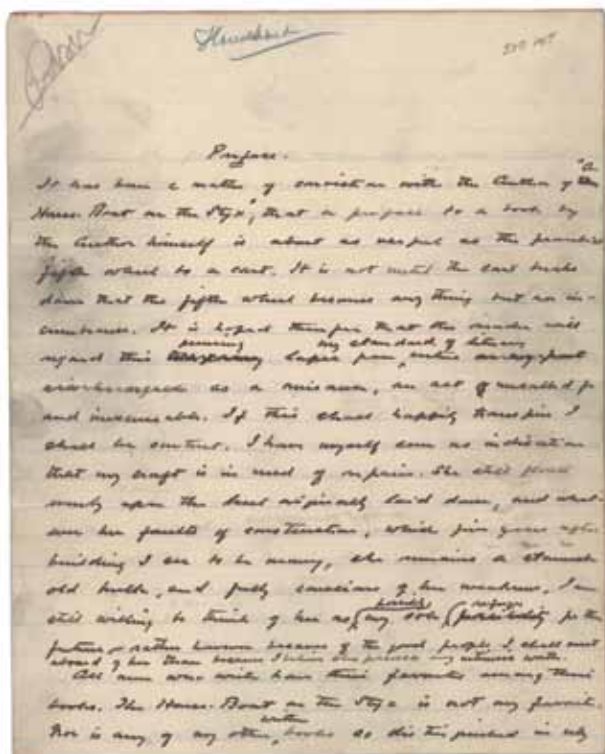 Preface.
"A
It has been a matter of conviction with the Author of
House-Boat on the Styx", that a preface to a book by
the Author himself is about as useful as the
fifth wheel to a cart. It is not until the cart breaks
down that the fifth wheel becomes anything but an in-
cumbrance. It is hoped therefore that the reader will
my standard of literary
regard this lapse from,
as a misuse, an act uncalled for
and inexcusable. If this shall happily transpire I
shall be content. I have myself seen no indication
that my craft is in need of repairs. She still floats
upon the keel originally laid down, and what-
ever her faults of construction, which five years after
building I see to be many, she remains a staunch
old hulk, and fully conscious of her weakness, I am
possible refuge
still willing to think of her as my sole for the
future, rather because of the good people I shall meet
aboard of her than because I
All men who write have their favorites among their
books. The House-Boat on the Styx is not my favorite.
Nor is any of my other books so distinguished in my